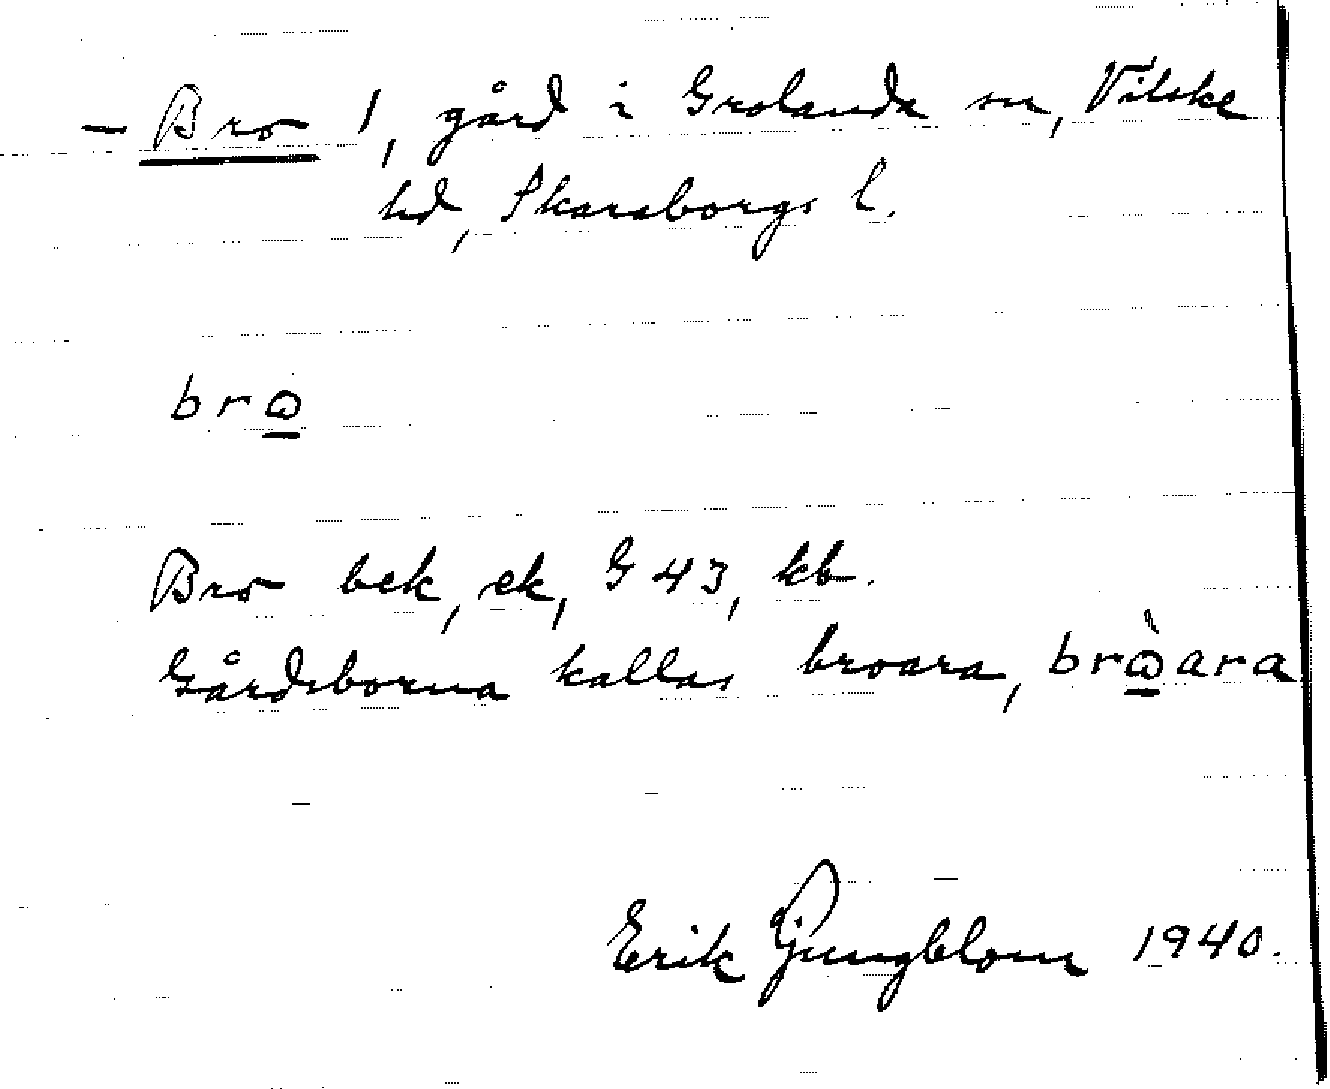 – Bro 1, gård i Grolanda sn, Vilske
hd, Skaraborgs l.
brɷ
Bro bek, ek, G 43, kb.
Gårdsborna kallas broara, brɷ̀ara
Erik Ljungblom 1940.